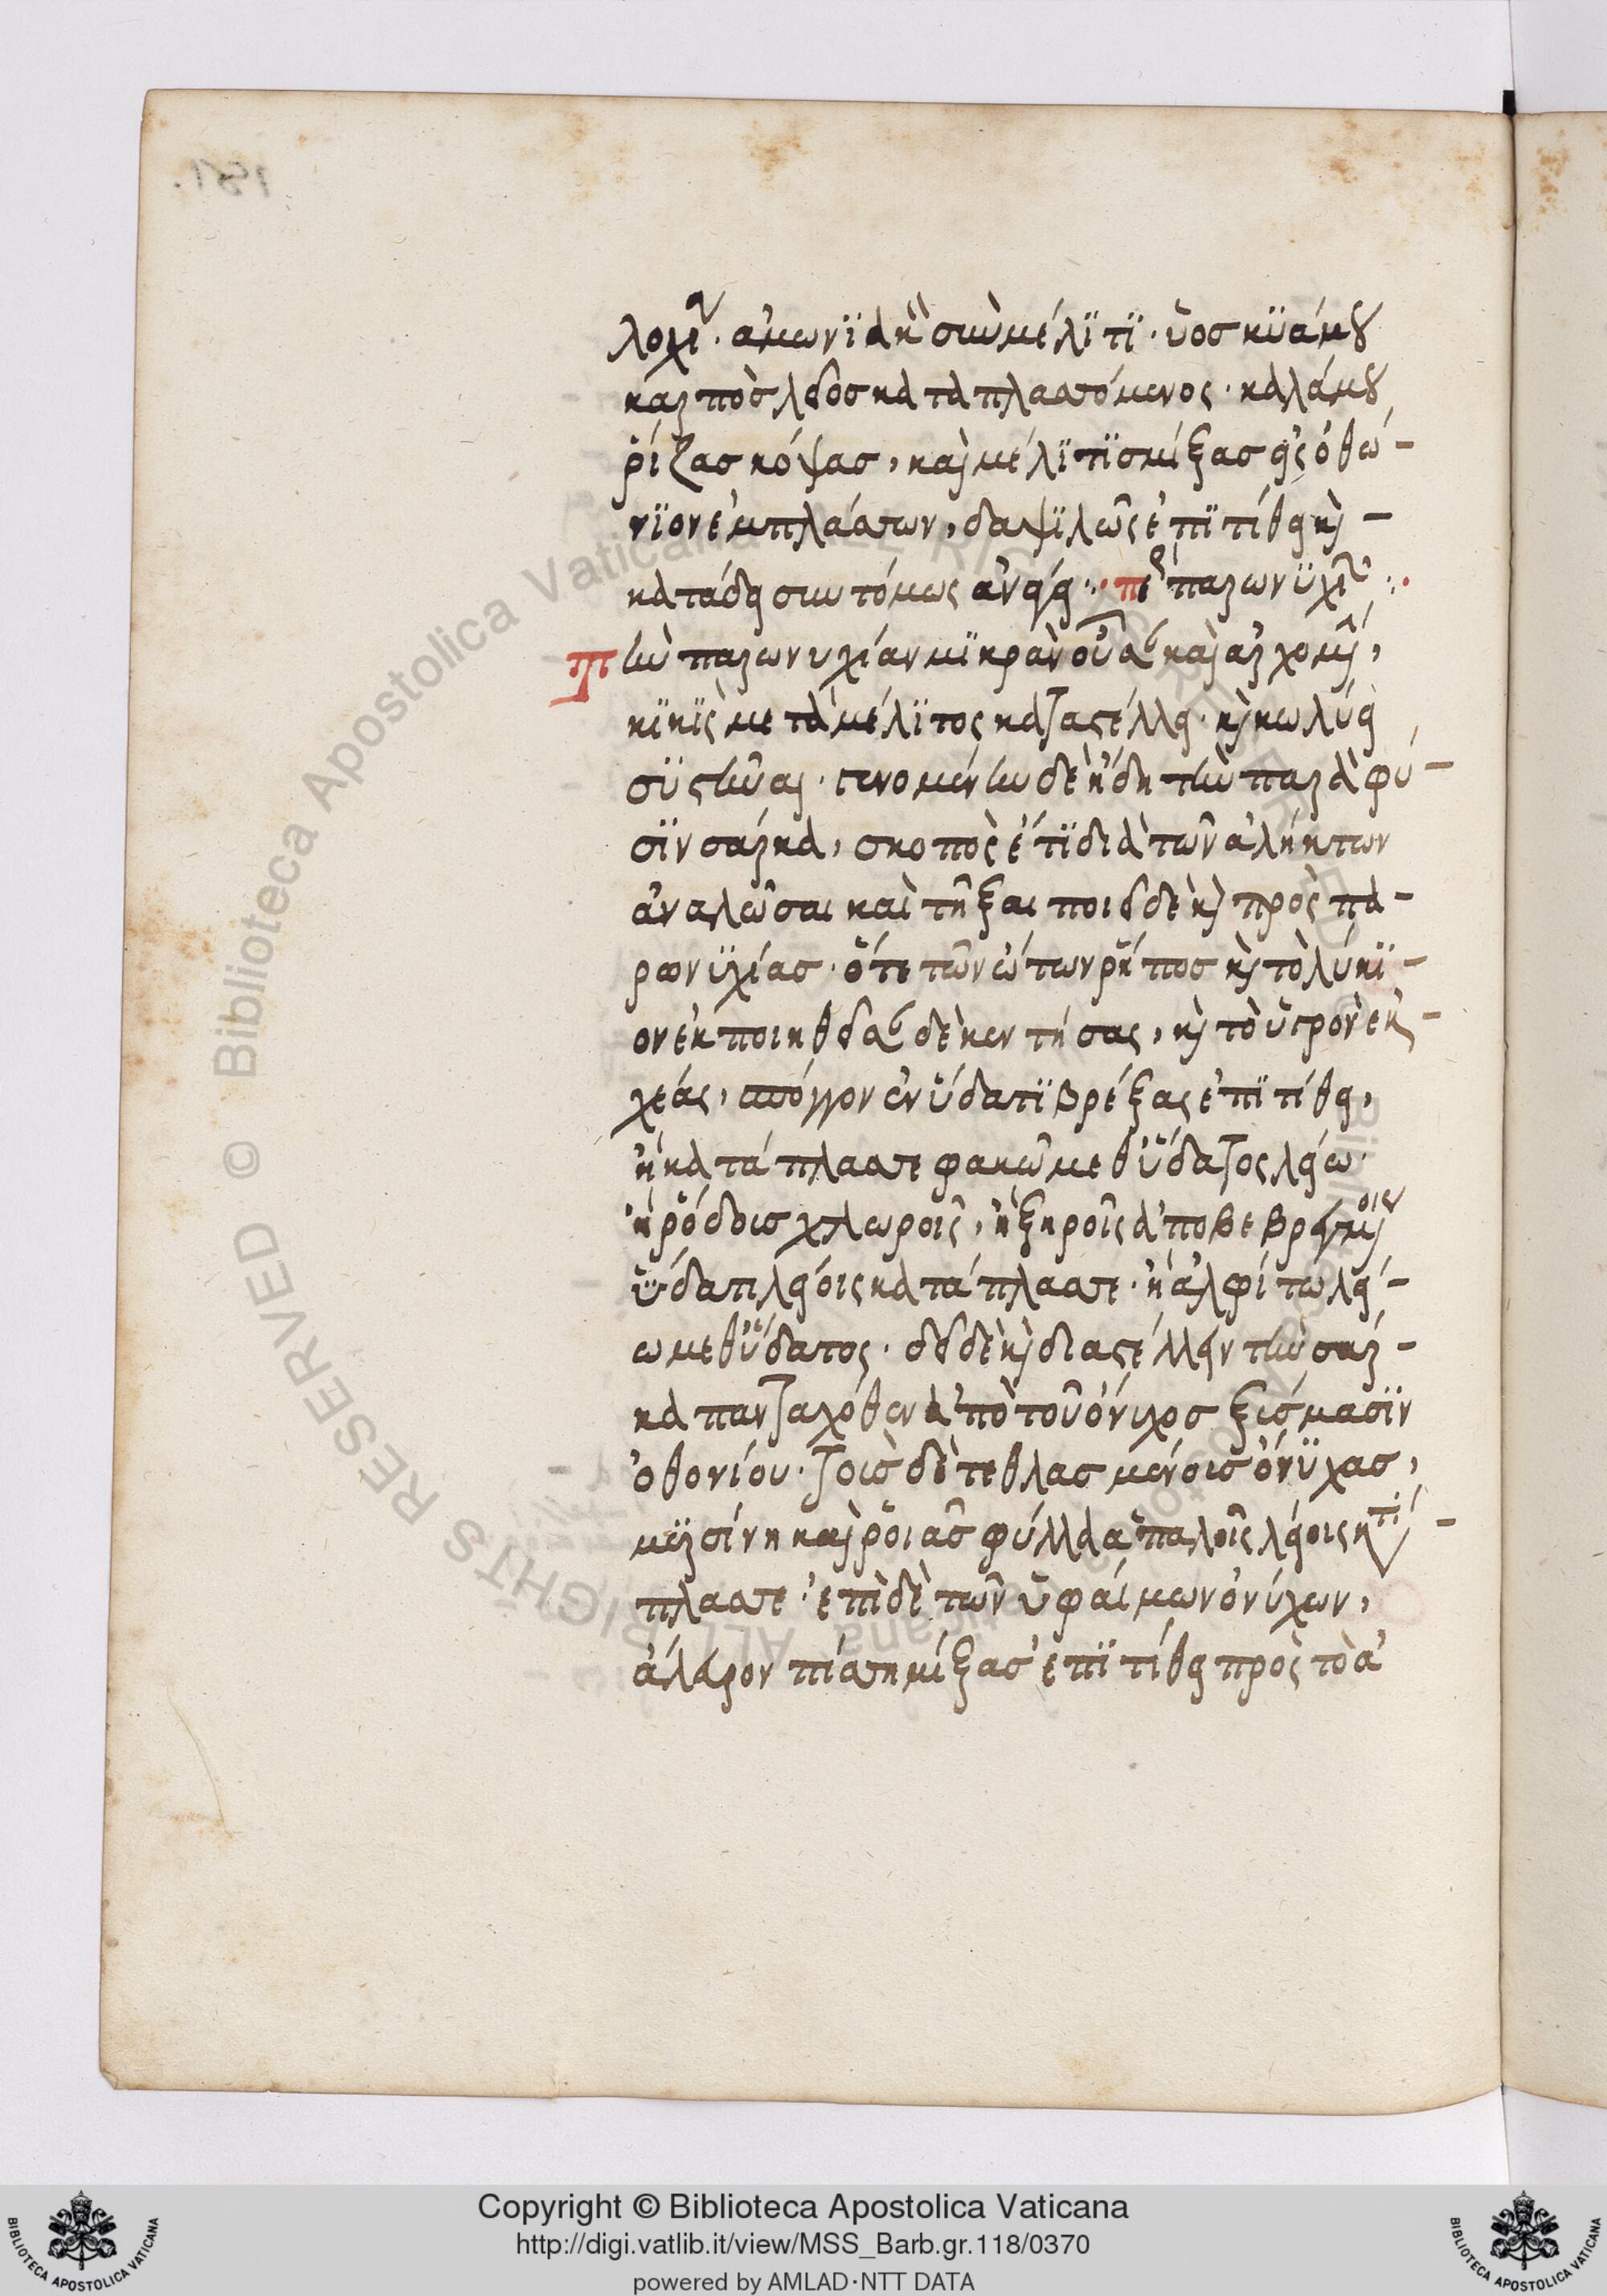 151.
λοχί · ἀμωνϊακὴ σὺν μέλϊτϊ · ὗος κϋάμου
καρπὸς λεῖος καταπλασσόμενος · καλάμου
ῥίζας κόψας, καὶ μέλϊτϊ σμίξας εἰς ὀθώ-
νϊον ἐμπλάσσων, δαψϊλῶς ἐπϊτίθει καὶ -
κατάδει συντόμως ἀνάγει ·· περὶ παρωνϋχί ··
τὴν παρωνυχίαν μϊκρὰν οὖσαν καὶ ἀρχομένην,
κϊκὶς μετὰ μέλϊτος καταστέλλει · καὶ κωλύει
σϋστῆναι · γενομένην δὲ ἤδη τὴν παρὰ φύ-
σϊν σάρκα, σκοπὸς ἔτϊ διὰ τῶν ἀλήπτων
ἀναλῶσαι καὶ τῆξαι ποιεῖ δὲ καὶ πρὸς πα-
ρωνϋχίας · ὅτε τῶν ὤτων ῥήπος καὶ τὸ λύκϊ-
ον ἐκποιηθεῖσαν δὲ κεντήσας, καὶ τὸ ὑγρὸν ἐκ-
χεάς, σπόγγον ἐν ὕδατϊ βρέξας ἐπϊτίθει,
ἢ κατάπλασσε φακῶ μεθ' ὕδατος λείω ·
ἢ ῥόδοις χλωροῖς, ἢ ξηροῖς ἀποβεβρεγμένοις
ὕδατι λείοις κατάπλασσε · ἢ ἀλφίτω λεί-
ω μεθ' ὕδατος · δεῖ δὲ καὶ διαστέλλειν τὴν σάρ-
κα πανταχόθεν ἀπὸ τοῦ ὄνυχος ξίσμασϊν
ὀθονίου · τοῖς δὲ τεθλασμένοις ὄνϋχας,
μϋρσίνη καὶ ῥοιᾶς φύλλα ἁπαλοῖς λείοις κατά-
πλασσε · ἐπὶ δὲ τῶν ὑφαίμων ὀνύχων,
ἄλευρον πίσση μίξας ἐπϊτίθει πρὸς τὸ ἀ
Biblioteca Apostolica Vaticana ALL RIGHTS RESERVED ©
Copyright © Biblioteca Apostolica Vaticana
http://digi.vatlib.it/view/MSS_Barb.gr.118/0370
powered by AMLAD·NTT DATA
BIBLIOTECA APOSTOLICA VATICANA
BIBLIOTECA APOSTOLICA VATICANA